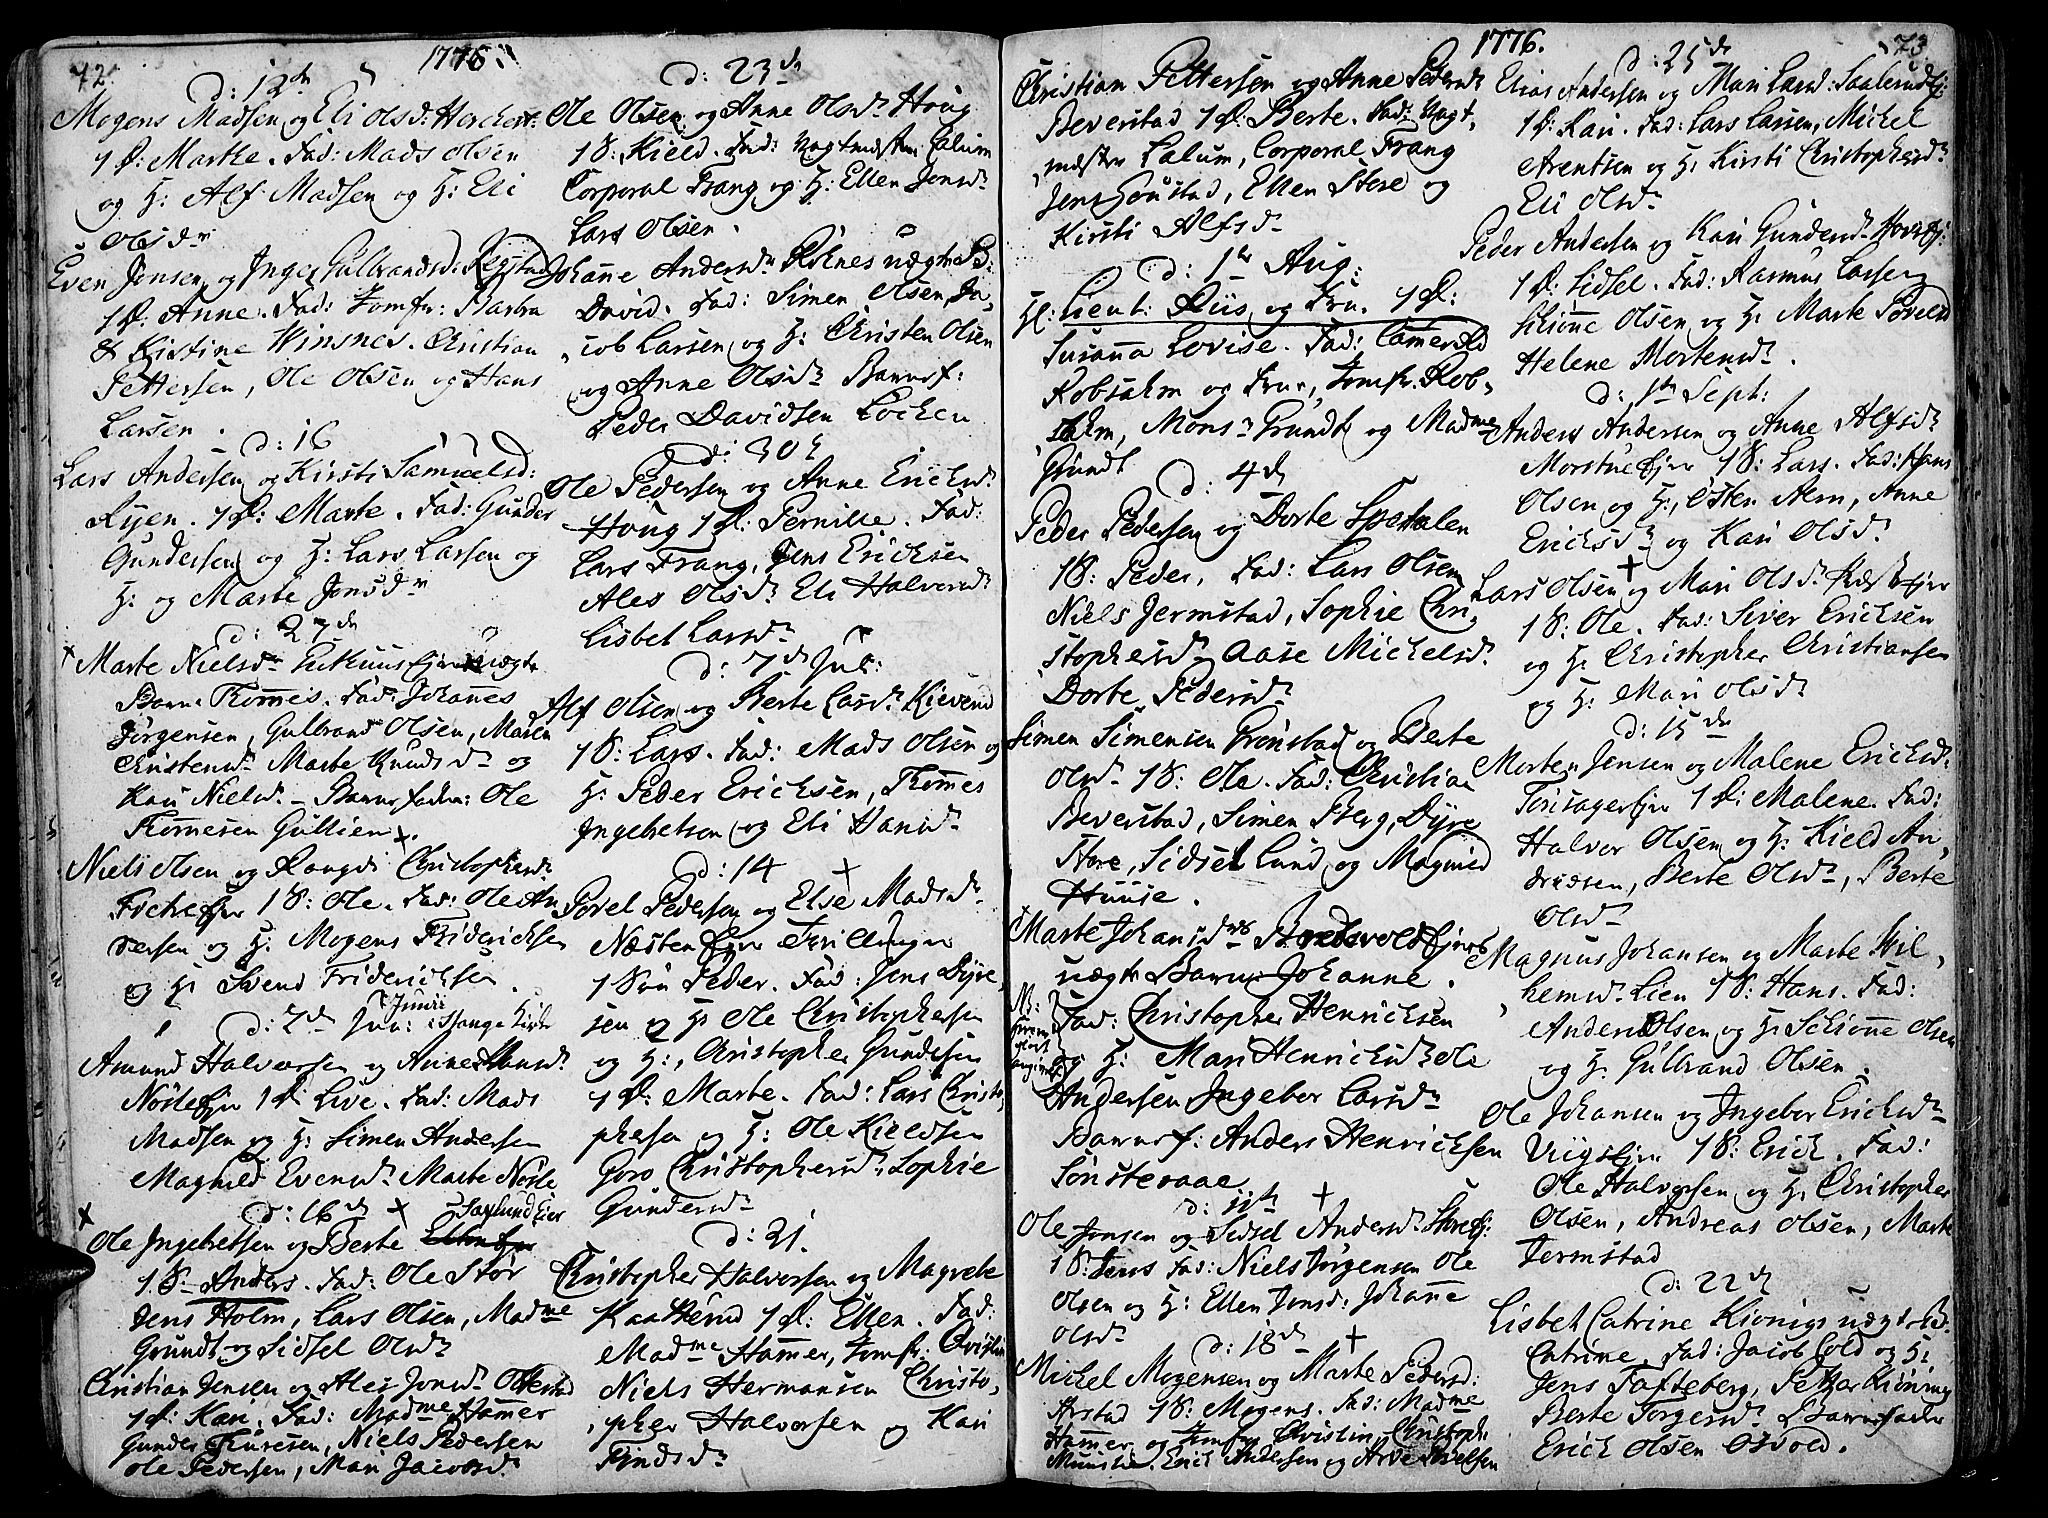 72.
1776.
d: 12te
Mogens Madsen og Eli Olsd:
1 D: Marthe. Fad: Mads Olsen
og H: Alf Madsen og H: Eli
Olsdr
Even Jensen og Inger Gulbrandsd. Regstad
1 D: Anne. Fad: Jomfr: Barbra
& Kistine Winsnes. Christian
Pettersen, Ole Olsen og Hans
Larsen.
d: 16
Lars Andersen og Kirsti Samuelsd:
Ryen. 1 D: Marte. Fad: Gunder
Gundersen og H: Lars Larsen og
H: og Marte Jonsdr
d: 27de
Marte Nielsdr uægte
Barn Thomes. Fad: Johannes
Jørgensen, Gulbrand Olsen, Maren
Christensdr Marte Knudsdr og
Kari Nielsdr – Barnefader: Ole
Thomesen Gullien.
Niels Olsen og Rangdi Christophersdr
1 S: Ole. Fad: Ole An
dersen og H: Mogens Friderichsen
og H: Svend Friderichsen.
d: 7de Junii
Amund Halvorsen og Anne Hansdr
Nøsle Ejer 1 D: Live. Fad: Mads
Madsen og H: Simen Andersen
Magnild Evensdr Marte Nøsle
d: 16de
Ole Ingebretsen og Berte
1 S. Anders. Fad: Ole Stør
Jens Holm, Lars Olsen, Madme
Grundt og Sidsel Olsdr
Christian Jensen og Ales Jonsdr
1 D: Kari. Fad: Madme Hammer
Gunder Thuresen, Niels Pedersen
Ole Pedersen, Mari Jacobsdr
d: 23de
Ole Olsen og Anne Olsdr Houg
1 S: Kield. Fad: Vagtmester Lalum
Corporal Frang og H: Ellen Jensdr
Lars Olsen.
Johanne Andersdr uægte
David. Fad: Simen Olsen, Ja,
cob Larsen og H: Christen Olsen
og Anne Olsdr Barnef:
Peder Davidsen Løcken
d: 30te
Ole Pedersen og Anne Ericksdr
Houg 1 D: Pernille. Fad:
Lars Frang, Jens Ericksen
Ales Olsdr Eli Halversdr
Lisbet Larsdr
d: 7de Jul:
Alf Olsen og Berte Larsdr
1 S: Lars. Fad: Mads Olsen og
H: Peder Ericksen, Thomes
Ingebretsen og Eli Hansdr
d: 14
Povel Pedersen og Else Madsdr
Næsten Ejer Tvillinger
1 Søn Peder. Fad: Jens Dyre,
sen og H: Ole Christophersen
og H:, Christopher Gundersen
1 D: Marte. Fad: Lars Christo,
phersen og H: Ole Kieldsen
Goro Christophersdr Sophie
Gundersdr
d: 21.
Christopher Halvorsen og Magrete
1 D: Ellen. Fad:
Madme Hammer, Jomfr: Qvistin
Niels Hermansen Christo,
pher Halvorsen og Kari
Findsdr
1776.
73
Christian Pettersen og Anne Pedersdr
Beverstad 1 D: Berte. Fad: Vagt,
mester Lalum, Corporal Frang
Jens Goustad, Ellen Store og
Kirsti Alfsdr
d: 1te Aug:
Hl: Lieut: Riis og Fru. 1 D:
Susanna Lovise. Fad:
Robsahm og Frue, Jomfr. Rob,
sahm, Monsr Grundt og Madme
Grundt
d: 4de
Peder Pedersen og Dorte Spetalen
1 S: Peder, Fad: Lars Olsen
Niels Jermstad, Sophie Chri,
stophersdr Aase Michelsdr
Dorte Pedersdr
Simen Simensen Grønstad og Berte
Olsdr 1 S: Ole. Fad: Christian
Beverstad, Simen Berg, Dyre
Store, Sidsel Lund og Magnild
Huuse.
Marte Johansdr
uægte Barn Johanne.
Fad: Christopher Henricksen
og H: Mari Henricksdr Ole
Andersen Ingebor Larsdr
Barnef: Anders Henricksen
Sønsteraae
d: 11te
Ole Jonsen og Sidsel Andersdr
1 S: Jens Fad: Niels Jørgensen Ole
Olsen og H: Ellen Jonsd: Johanne
Olsdr
d: 18de
Michel Mogensen og Marte Pedersd:
Arstad 1 S: Mogens. Fad: Madme
Hammer og Jomfru Qvistin, Christoph:
Erick Andersen og
d: 25de
Elias Andersen og Mari Larsd:
1 D: Kari. Fad: Lars Larsen, Michel
Arentsen og H: Kirsti Christophersdr
Eli Olsdr
Peder Andersen og Kari Gundersdr
1 D: Sidsel. Fad: Rasmus Larsen
Schiønne Olsen og H: Marte Povelsd
Helene Mortensdr.
d: 1te Sept:
Anders Andersen og Anne Alfsdr
Morstue Ejer 1 S: Lars. Fad: Hans
Olsen og H:, Østen Aern, Anne
Ericksdr og Kari Olsdr
Lars Olsen og Mari Olsdr
1 S: Ole. Fad: Siver Ericksen
og H: Christopher Christiansen
og H: Mari Olsdr
d: 15de
Morten Jensen og Malene Ericksdr
1 D: Malene. Fad:
Halvor Olsen og H: Kield An,
dreasen, Berte Olsdr, Berte
Olsdr
Magnus Johansen og Marte Wil,
hemsdr Lien 1 S: Hans. Fad:
Anders Olsen og H: Schiønne Olsen
og H: Gulbrand Olsen.
Ole Johansen og Ingebor Ericksdr
Viigs Ejer 1 S: Erick. Fad:
Ole Halvorsen og H: Christopher
Olsen, Andreas Olsen, Marte
Jermstad
d: 22de
Lisbet Catrine Kionigs uægte B.
Catrine. Fad: Jacob Cold og H:
Jens Tofteberg, Petter Kioning
Berte Torgersdr Barnefader
Erick Olsen Osvold.